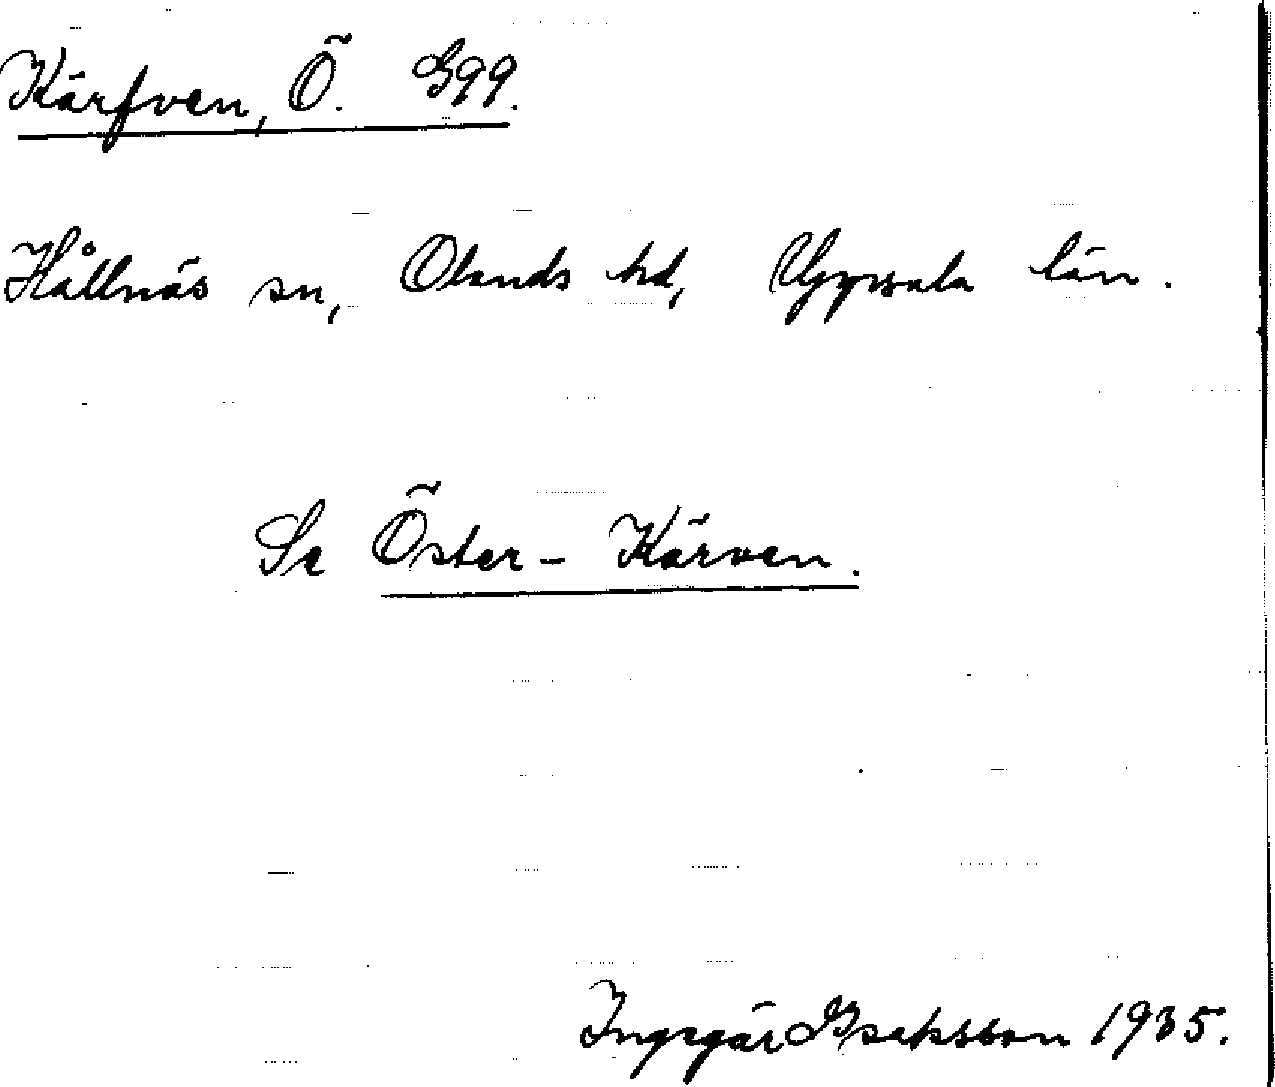 Kärfven, Ö. G99.
Hållnäs sn, Olands hd, Uppsala län.
Se Öster-Kärven.
Isaksson 1935.